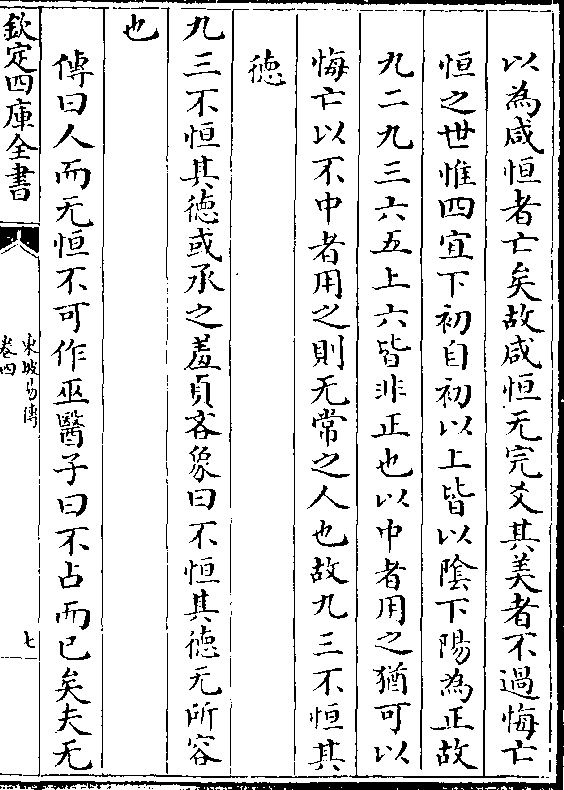 以為咸恒者亡矣故咸恒无完爻其美者不過悔亡
恒之世惟四宜下初自初以上皆以隂下陽為正故
九二九三六五上六皆非正也以中者用之猶可以
悔亡以不中者用之則无常之人也故九三不恒其
徳
九三不恒其徳或承之羞貞吝象曰不恒其徳无所容
也
傳曰人而无恒不可作巫醫子曰不占而已矣夫无
欽定四庫全書
東坡易傳
卷四
七